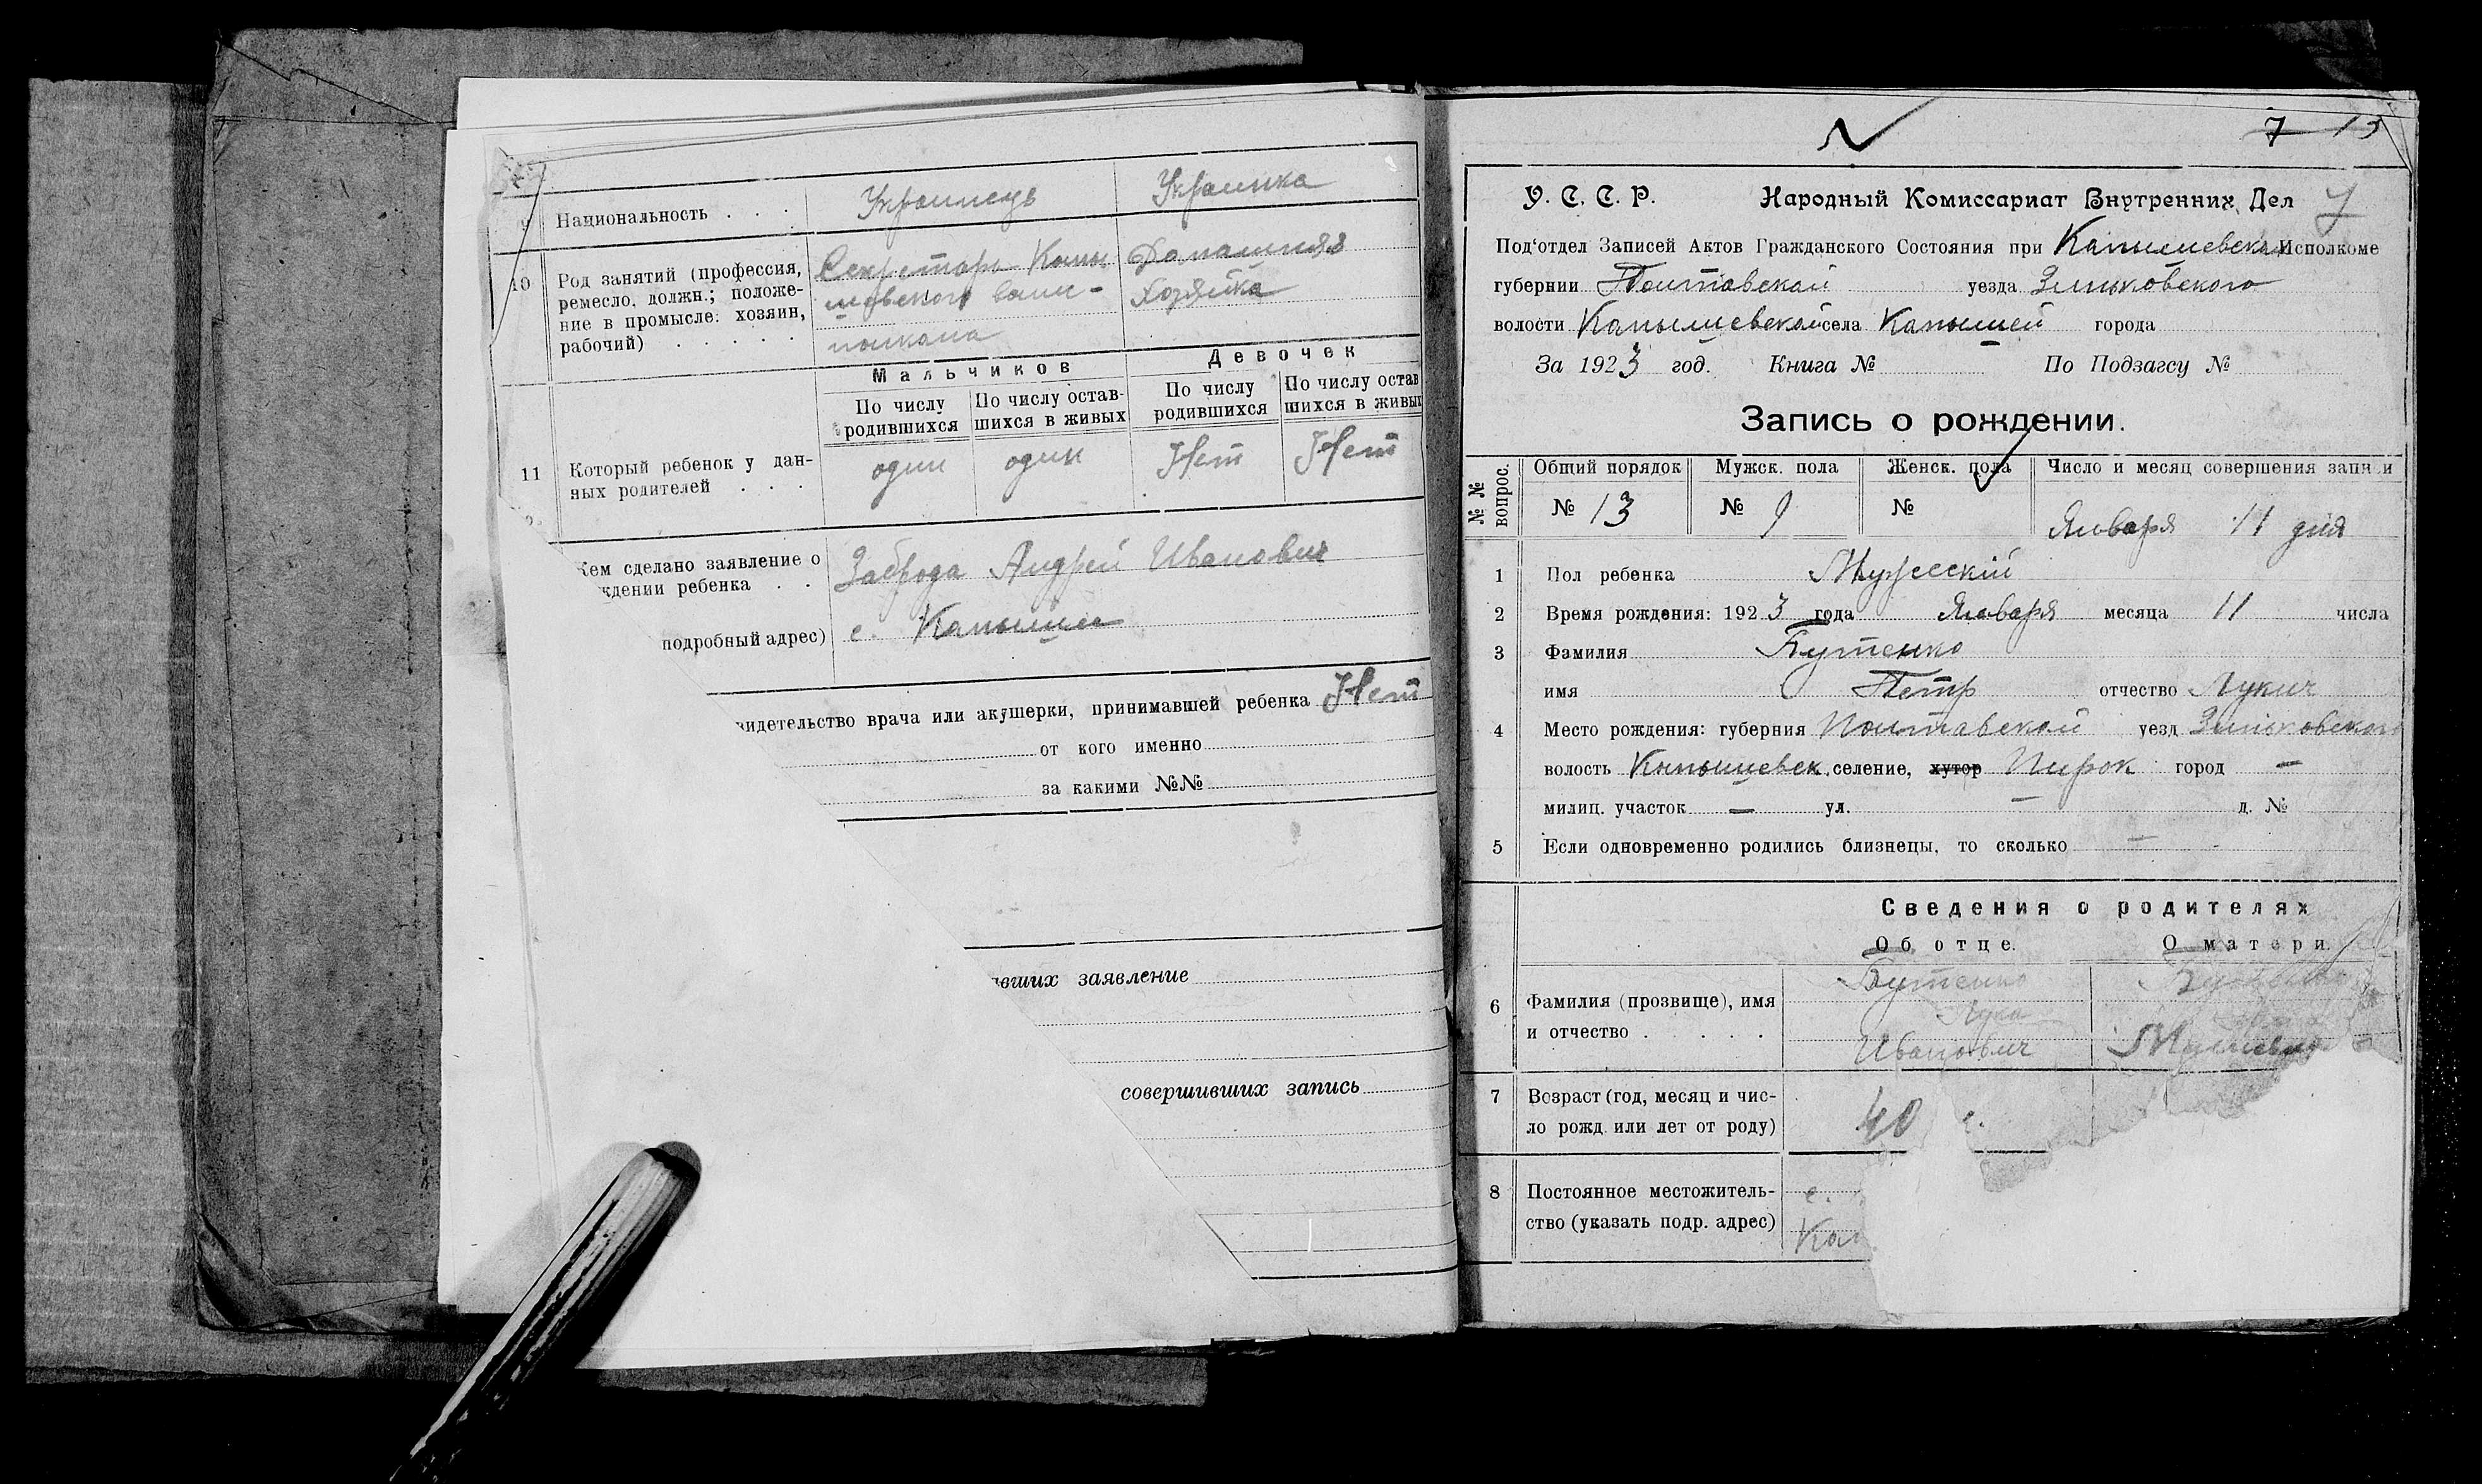 9 Национальность . . . Украинець Украинка
10 Род занятий (профессия, Секретарь Капы Домашняя
ремесло, должн.; положе- шовского Хозяйка
ние в промысле: хозяин,
рабочий) . . . . .
Мальчиков Девочек
По числу По числу остав- По числу По числу остав
родившихся шихся в живых родившихся шихся в живых
11 Который ребенок у дан- один один Нет Нет
ных родителей . . .
Кем сделано заявление о Заброда Андрей Иванович
ждении ребенка . .
подробный адрес) с. Капышни
видетельство врача или акушерки, принимавшей ребенка Нет
от кого именно
за какими №№
вших заявление
совершивших запись
7 13
У. С. С. Р. Народный Комиссариат Внутренних Дел 7
Под‘отдел Записей Актов Гражданского Состояния при Исполкоме
губернии Полтавской уезда Зиньковского
волости села города
За 1923 год. Книга № По Подзагсу №
Запись о рождении.
№ № вопрос. Общий порядок Мужск. пола Женск. пола Число и месяц совершения запи и
№ 13 № 9 № Января 11 дня
1 Пол ребенка Мужеский
2 Время рождения: 1923 года Января месяца 11 числа
3 Фамилия Бутенко
имя Петр отчество Лукич
4 Место рождения: губерния Полтавской уезд Зиньковского
волость селение, хутор Пирок город —
милиц. участок — ул. — д. №
5 Если одновременно родились близнецы, то сколько —
Сведения о родителях
Об отце. О матери.
6 Фамилия (прозвище), имя Бутенко
и отчество . . . . . Лука
Иванович
7 Возраст (год, месяц и чис-
ло рожд. или лет от роду) 40
8 Постоянное местожитель- с.
ство (указать подр. адрес) Кап